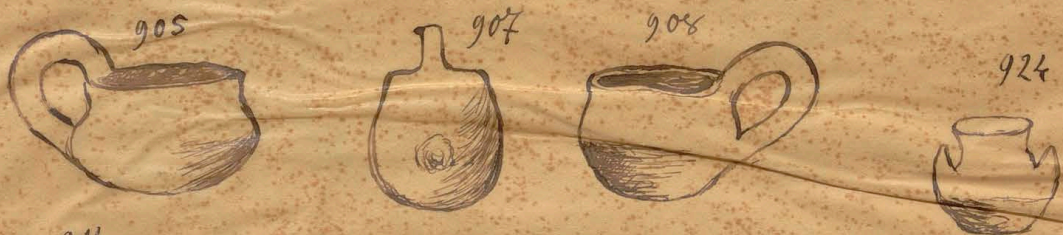 905 907 908
924